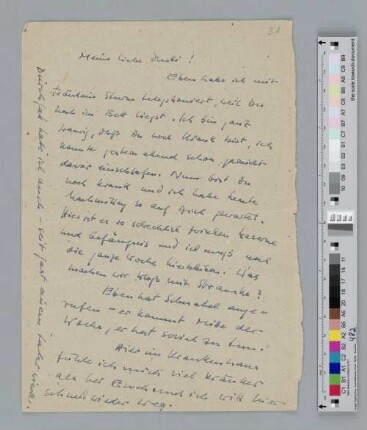 31
Meine liebe Mutti!
Eben habe ich mit
Fräulein Sturm telephoniert, weil Du
noch im Bett liegst. Ich bin ganz
traurig, daß Du noch krank bist, ich
konnte gestern abend schon
einschlafen. Nun bist Du
noch krank und ich habe heute
nachmittag so auf Dich gewartet.
Hier ist es so schrecklich zwischen Kaserne
und Gefängnis und ich muß noch
die ganze Woche hierbleiben. Was
machen wir bloß mit
Eben hat Schnabel ange-
rufen - er kommt Mitte der
Woche, er hat soviel zu tun.
Hier im Krankenhaus
fühle ich mich viel kränker
als bei Euch und ich will hier
schnell wieder weg.
Durchfall habe ich auch - seit
the scale towards document